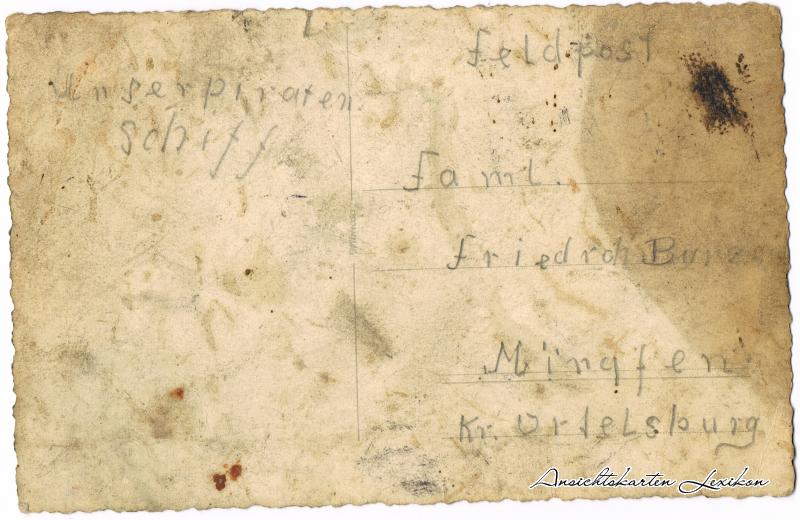 Unserpiraten
Schiff
Feldpost
Faml.
Friedrch
Mingfen
Kr. Ortelsburg
Ansichtskarten Lexikon